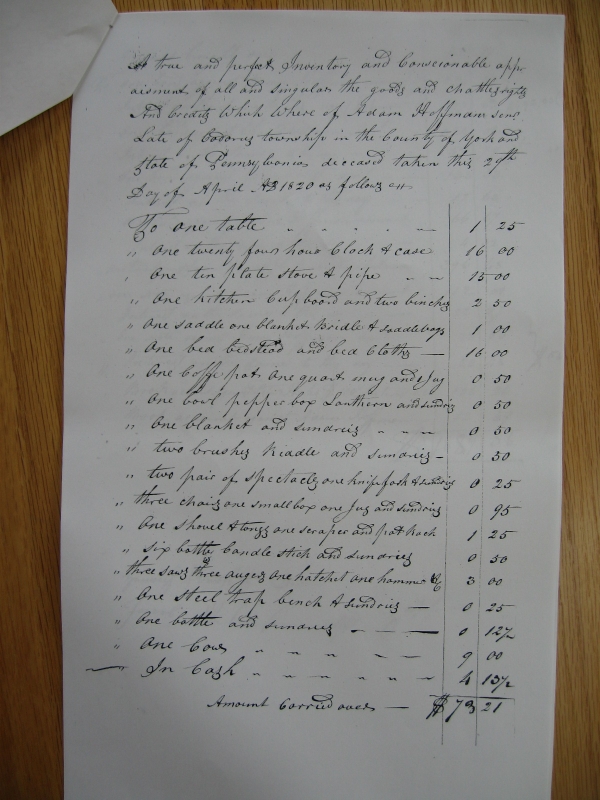 A true and perfect Inventory and Conscionable appr
aisment of all and singular the goods and chattles rights
And Credits Which Where of Adam Hoffman senr
Late of Codorus township in the County of York and
State of Pennsylvania deceased taken this 29th
Day of April AD 1820 as follows
To one table " " " " — 1 25
" One twenty four hour Clock & case 16 00
" One tin plate stove & pipe " — 15 00
" One kitchen Cupboord and two binches 2 50
" One saddle one blanket bridle & saddlebags 1 00
" One bed bedstead and bed Cloths — 16 00
" One Coffe pot one quart mug and 1 Jug 0 50
" One bowl pepper box Lanthorn and sundries 0 50
" One blanket and sundries " " " 0 50
" two brushes Riddle and sundries — 0 50
" two pair of spectacles one knife fork & sundries 0 25
" three chairs one small box one Jug and sundries 0 95
" One shovel & tongs one scraper and pot hack 1 25
" six bottles Candle stick and sundries 0 50
" three saws three augers one hatchet one hammer &c 3 00
" One steel trap bench & sundries — 0 25
" One bottle and sundries — — — 0 12½
" One Cow " " " " — 9 00
" In Cash " " " " " — 4 13½
Amount Carried over — $ 73 21